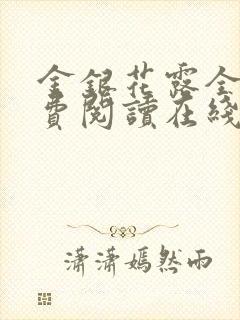 金銀花露全
費閱讀在綫
瀟瀟嫣然雨